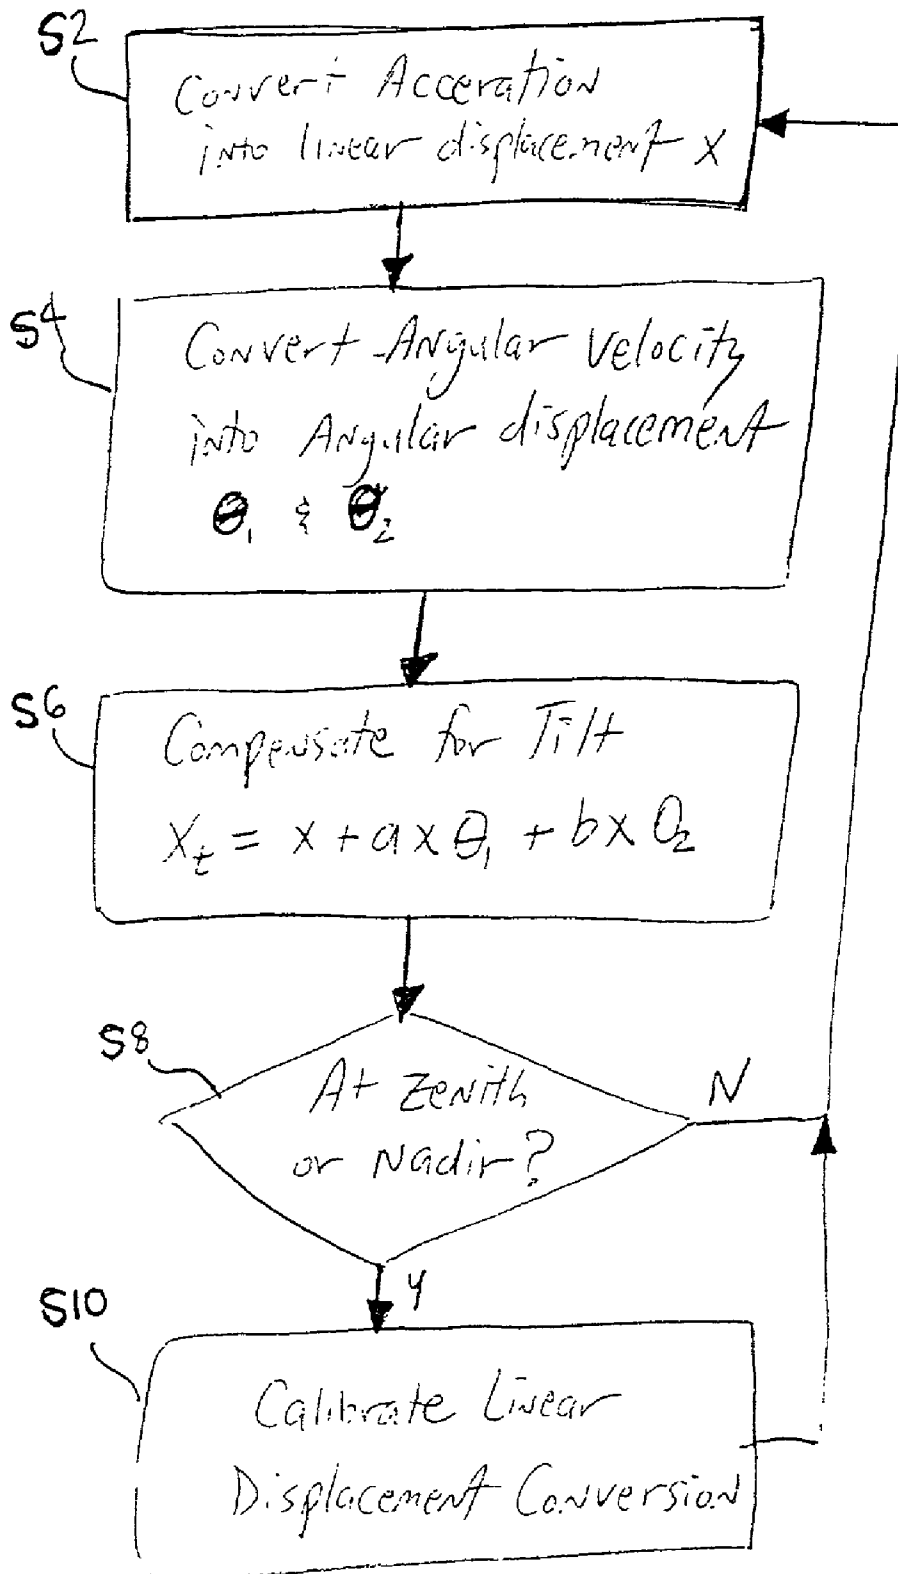 S2
Convert Acceration
into linear displacement x
S4
Convert Angular Velocity
into Angular displacement
θ₁ & θ₂
S6
Compensate for Tilt
X_t = x + a x θ₁ + b x θ₂
S8
At Zenith
or Nadir?
N
Y
S10
Calibrate Linear
Displacement Conversion